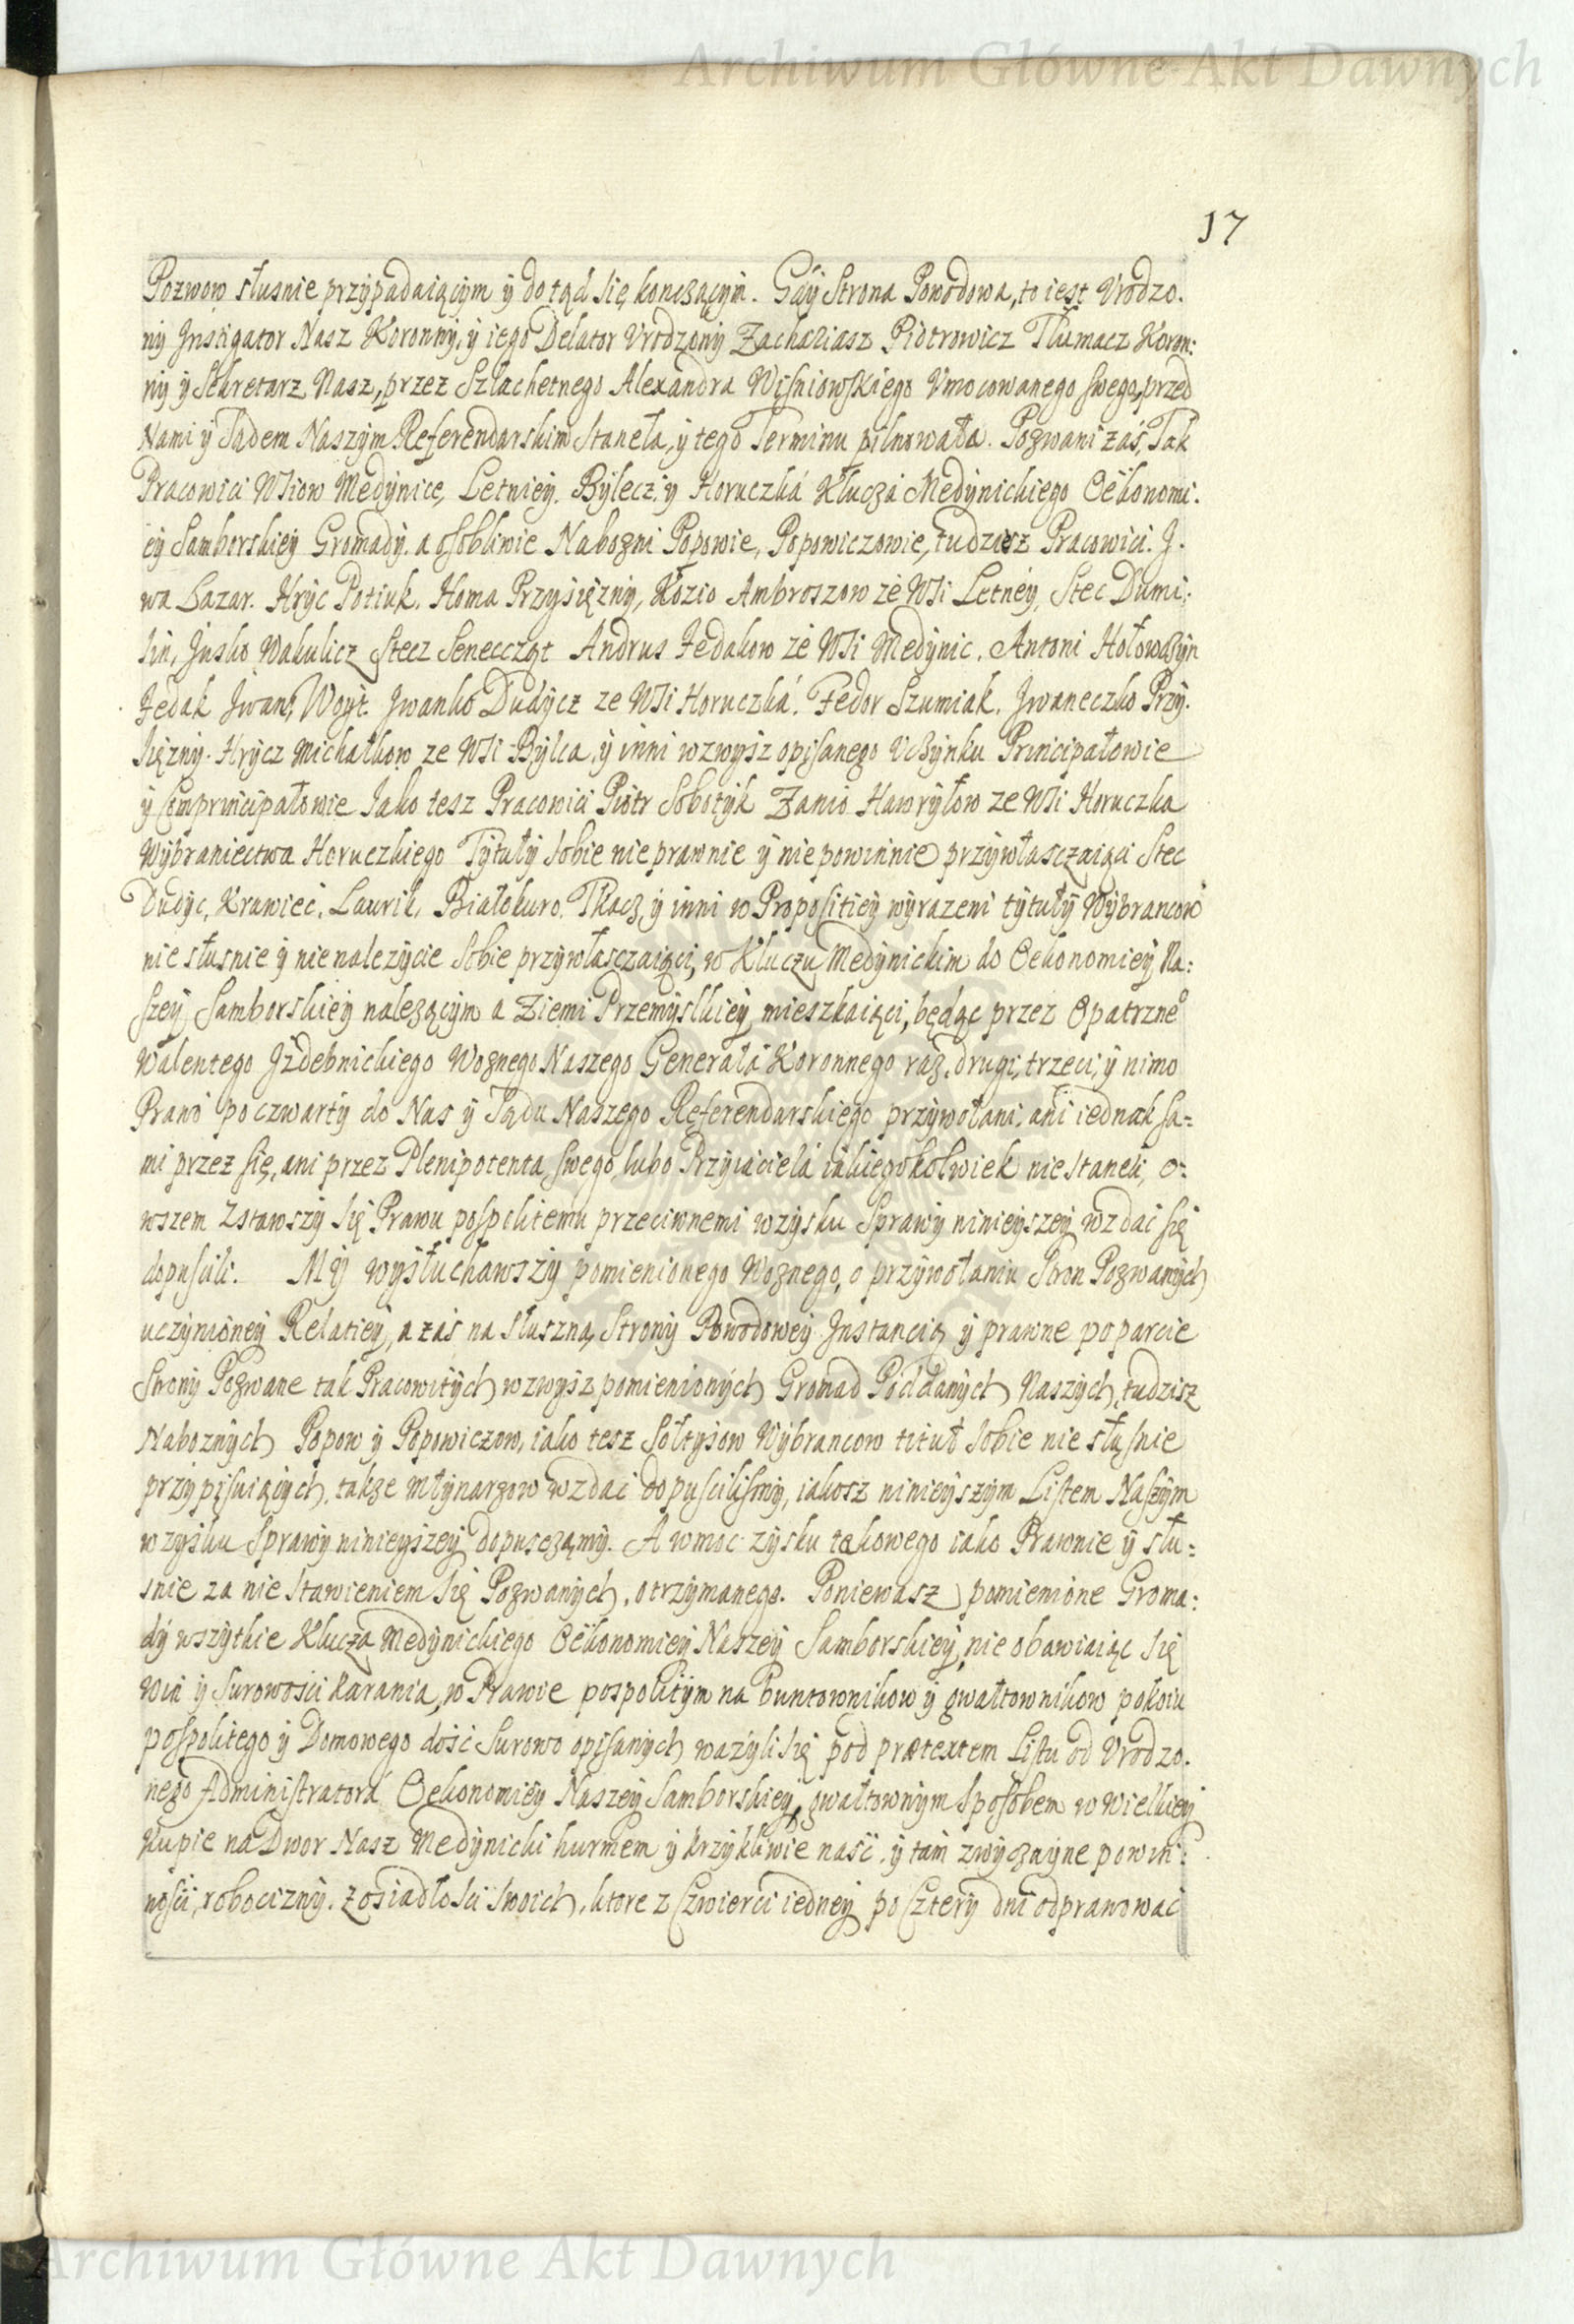 Archiwum Główne Akt Dawnych
17
Pozwow słusnie przypadaiącym y dotąd się konczącym. Gdy Strona Powodowa, to iest Vrodzo.
ny Instigator Nasz Koronny, y iego Delator Vrodzony Zachariasz Piotrowicz Tłumacz Koron:
ny y Sekretarz Nasz, przez Szlachetnego Alexandra Wisniowskiego Vmocowanego swego, przed
Nami y Sądem Naszym Referendarskim Staneła, y tego Terminu pilnowała. Pozwani zaś, Tak
Pracowici WSiow Medynice, Letniey. Bylecz, y Horuczká Kłuczá Medynickiego Oekonomi.
ey Samborskiey Gromady. a osobliwie Nabozni Popowie, Popowiczowie, tudziesz Pracowici. J.
wa Lazar. Hryc Potiuk. Homa Przysięzny, Kozio Ambroszow ze WSi Letney, Stec Dumi.
sin, Jusko Wakulicz Stecz Seneccząt Andrus Fedakow ze WSi Medynic. Antoni Hołowczyn
Fedak Jwan, Woyt. Jwanko Dudycz ze WSi Horuczká. Fedor Szumiak. Jwaneczko Przy.
sięzny. Hrycz Michałkow ze WSi Bylca, y inni wzwysz opisanego Vczynku Principałowie
y Comprincipałowie Jako tesz Pracowici Piotr Sobotyk Zanio Hawryłow ze WSi Horuczka
Wybraniectwa Horuczkiego Tytuły sobie nie prawnie y nie powinnie przywłasczaiąci Stec
Dudyc, Krawiec. Laurik, Białokuro. Tkacz, y inni w Propositiey wyrazeni tytuły Wybrancow
nie słusnie y nie nalezycie sobie przywłasczaiąci, w Kluczu Medynickim do Oekonomiey Na:
szey Samborskiey nalezącym a Ziemi Przemyslkiey mieszkaiąci, będąc przez Opatrzneo
Walentego Jzdebnickiego Woznego Naszego Generała Koronnego raz, drugi, trzeci, y nimo
Prawo po czwarty do Nas y Sądu Naszego Referendarskiego przywołani, ani iednak sa=
mi przez się, ani przez Plenipotenta swego, lubo Przyiaciela iakiegokolwiek nie staneli, o=
wszem Zstawszy się Prawu pospolitemu przeciwnemi wzysku Sprawy ninieyszey wzdac się
dopuscili. MY wysłuchawszy pomienionego Woznego, o przywołaniu Stron Pozwanych
uczynioney Relatiey, a zaś na słuszną Strony Powodowey Instancią y prawne poparcie
Strony Pozwane tak Pracowitych wzwysz pomienionych Gromad Poddanych Naszych, tudzisz
Naboznych Popow y Popowiczow, iako tesz Sołtysow Wybrancow tituł sobie nie słusnie
przypisuiących, takze Młynarzow wzdac dopuscilismy, iakosz ninieyszym Listem Naszym
wzysku Sprawy ninieyszey dopusczamy. A wmoc zysku takowego iako Prawnie y słu=
snie za nie stawieniem się Pozwanych, otrzymanego. Poniewasz pomienione Groma:
dy wszytkie Klucza Medynickiego Oekonomiey Naszey Samborskiey, nie obawiaiąc się
Win y surowosci karania, w Prawie pospolitym na buntownikow y gwałtownikow pokoiu
pospolitego y Domowego dość surowo opisanych wazyli się pod prætextem Listu od Vrodzo.
nego Administratora Oekonomiey Naszey Samborskiey, gwałtownym sposobem w wielkiey
kupie na Dwor Nasz Medynicki hurmem y krzykliwie naść, y tam zwyczayne powin:
ności, robocizny. z osiadłości swoich, ktore z Czwierci iedney po Cztery dni odprawowac
Archiwum Główne Akt Dawnych